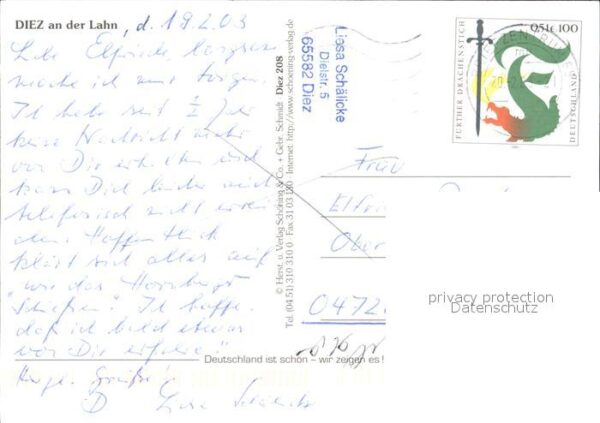 DIEZ an der Lahn , d. 19.2.03
Liebe Elfriede,
mache ich mir Sorgen.
Ich habe seit ½ Jahr
keine Nachricht mehr
von Dir erhalten und
kann Dich leider auch
telefonisch nicht errei-
chen. Hoffentlich
klärt sich alles auf
"wie das Hornberger
Schießen". Ich hoffe,
daß ich bald etwas
von Dir erfahre!
Herzl. Grüße!
© Herst. u. Verlag Schöning & Co. + Gebr. Schmidt Diez 208
Tel. (04 51) 310 310 0 Fax 31 03 130 Internet: http://www.schoening-verlag.de
Deutschland ist schön – wir zeigen es!
Liosa Schälicke
Dielstr. 5
65582 Diez
FURTHER DRACHENSTICH
0,51€ 100
DEUTSCHLAND
Frau
Elfrie
Ober
0472
privacy protection
Datenschutz